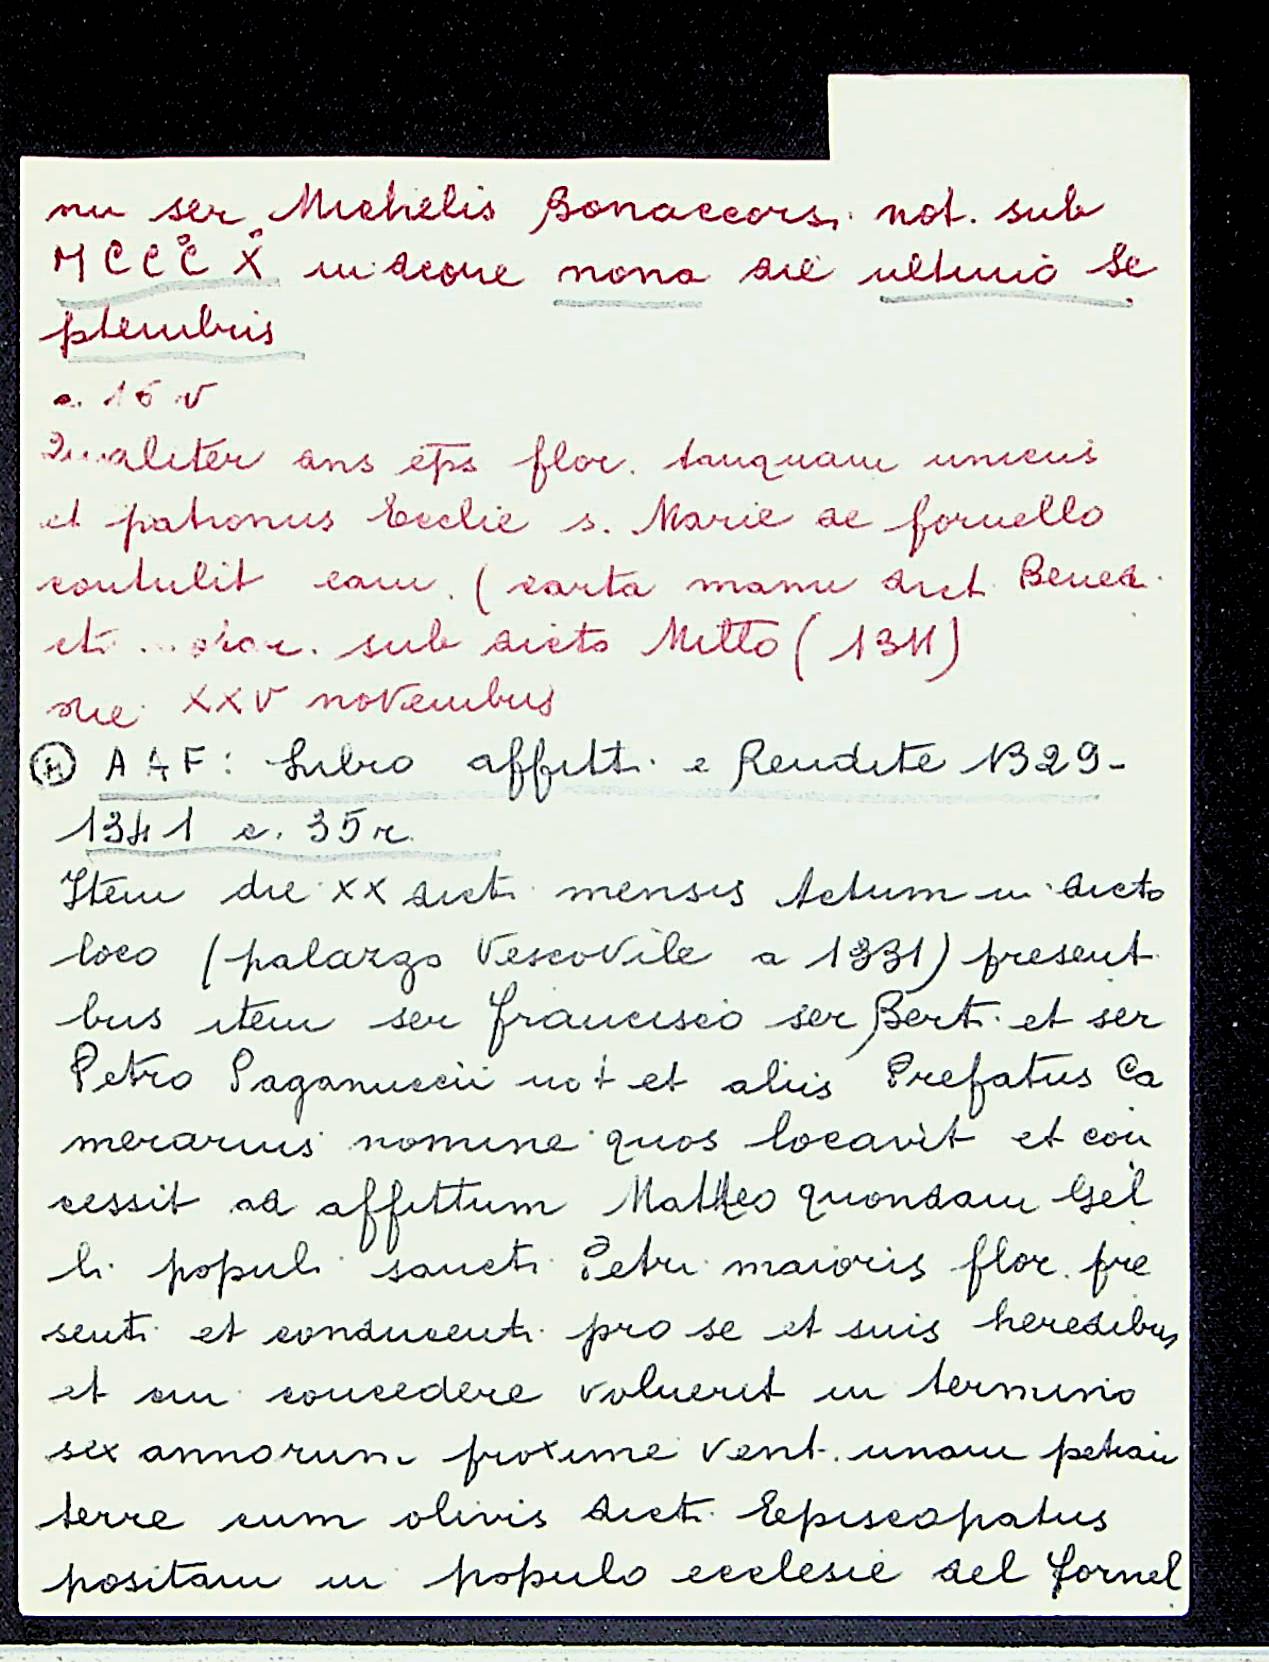 nu ser Michelis Bonaccorsi not. sub
MCCC°X° indcone nona die ultimo Se
ptembris
c. 16 v
Qualiter dns eps flor. tanquam unicus
et patronus Ecclie s. Marie de fornello
contulit eam. (carta manu dict Bened.
sub dicto Mitto (1311)
die XXV novembris
AAF: Libro affitti e Rendite 1329-
1341 c. 35 r.
Item die XX dicti mensis Actum in dicto
loco (palazzo Vescovile a 1331) present
bus item ser Francisco ser Berti et ser
Petro Paganuccii not et aliis Prefatus Ca
merarius nomine quos locavit et con
cessit ad affittum Matteo quondam Gel
li populi sancti Petri maioris flor. pre
senti et conducenti pro se et suis heredibus
et cui concedere voluerit in termino
sex annorum proxime vent. unam petiam
terre cum olivis dicti Episcopatus
positam in populo ecclesie del fornel